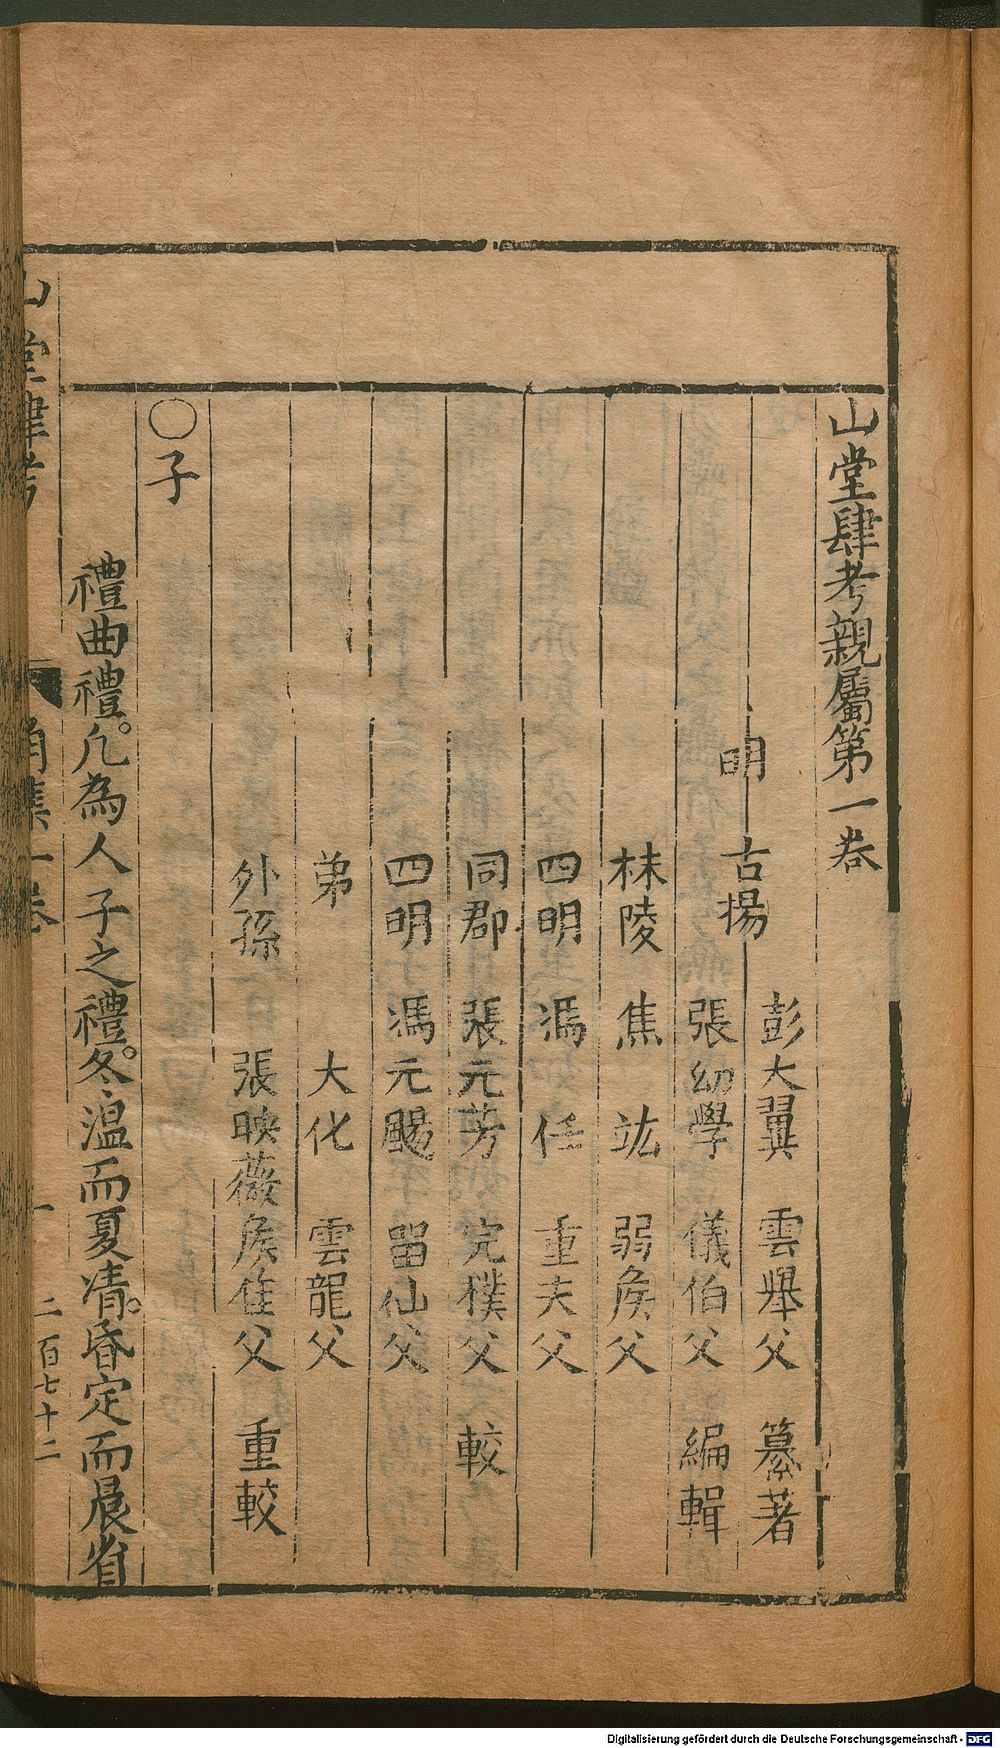 山堂肆考親屬第一卷
明 古揚
彭大翼 雲舉父 纂著
張幼學 儀伯父 編輯
秣陵 焦竑 弱矦父
四明 馮任 重夫父
同郡 張元芳 完樸父 較
四明 馮元颺 留仙父
弟 大化 雲龍父
外孫 張映薇矦住父 重較
〇子
禮曲禮。凢為人子之禮。冬溫而夏凊。昏定而晨省
山堂肆考 角集一卷 一 二百七十二
Digitalisierung gefördert durch die Deutsche Forschungsgemeinschaft - DFG